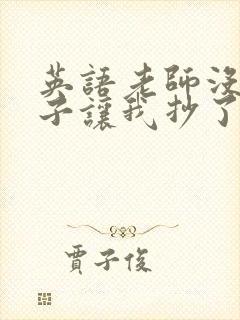 英語老師沒
子讓我抄了
賈子俊